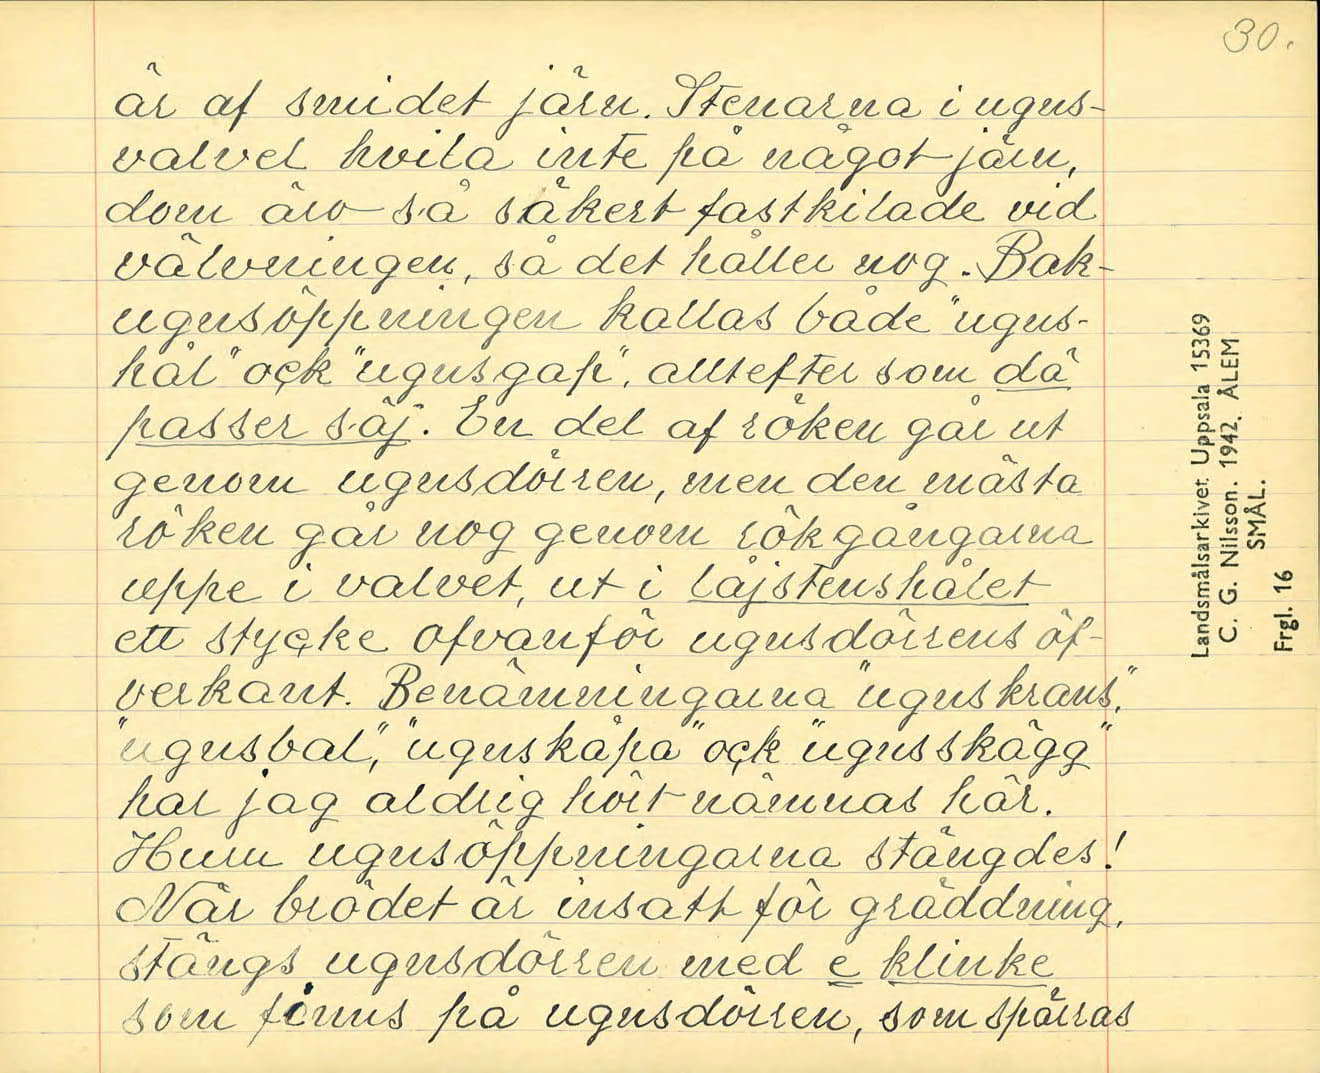 30.
är af smidet järn. Stenarna i ugns-
valvet hvila inte på något järn,
dom äro så säkert fastkilade vid
välvningen, så det håller nog. Bak-
ugnsöppningen kallas både "ugns-
hål" ock "ugnsgap", alltefter som dä
passer säj. En del af röken går ut
genom ugnsdörren, men den mästa
röken går nog genom rökgångarna
uppe i valvet, ut i låjstenshålet
ett stycke ofvanför ugnsdörrens öf-
verkant. Benämningarna "ugnskrans",
"ugnsbal", "ugnskåpa" ock "ugnsskägg"
har jag aldrig hört nämnas här.
Huru ugnsöppningarna stängdes!
När brödet är insatt för gräddning,
stängs ugnsdörren med e klinke
som finns på ugnsdörren, som spärras
Landsmålsarkivet Uppsala 15369
C. G. Nilsson. 1942. ÅLEM
SMÅL.
Frgl. 16